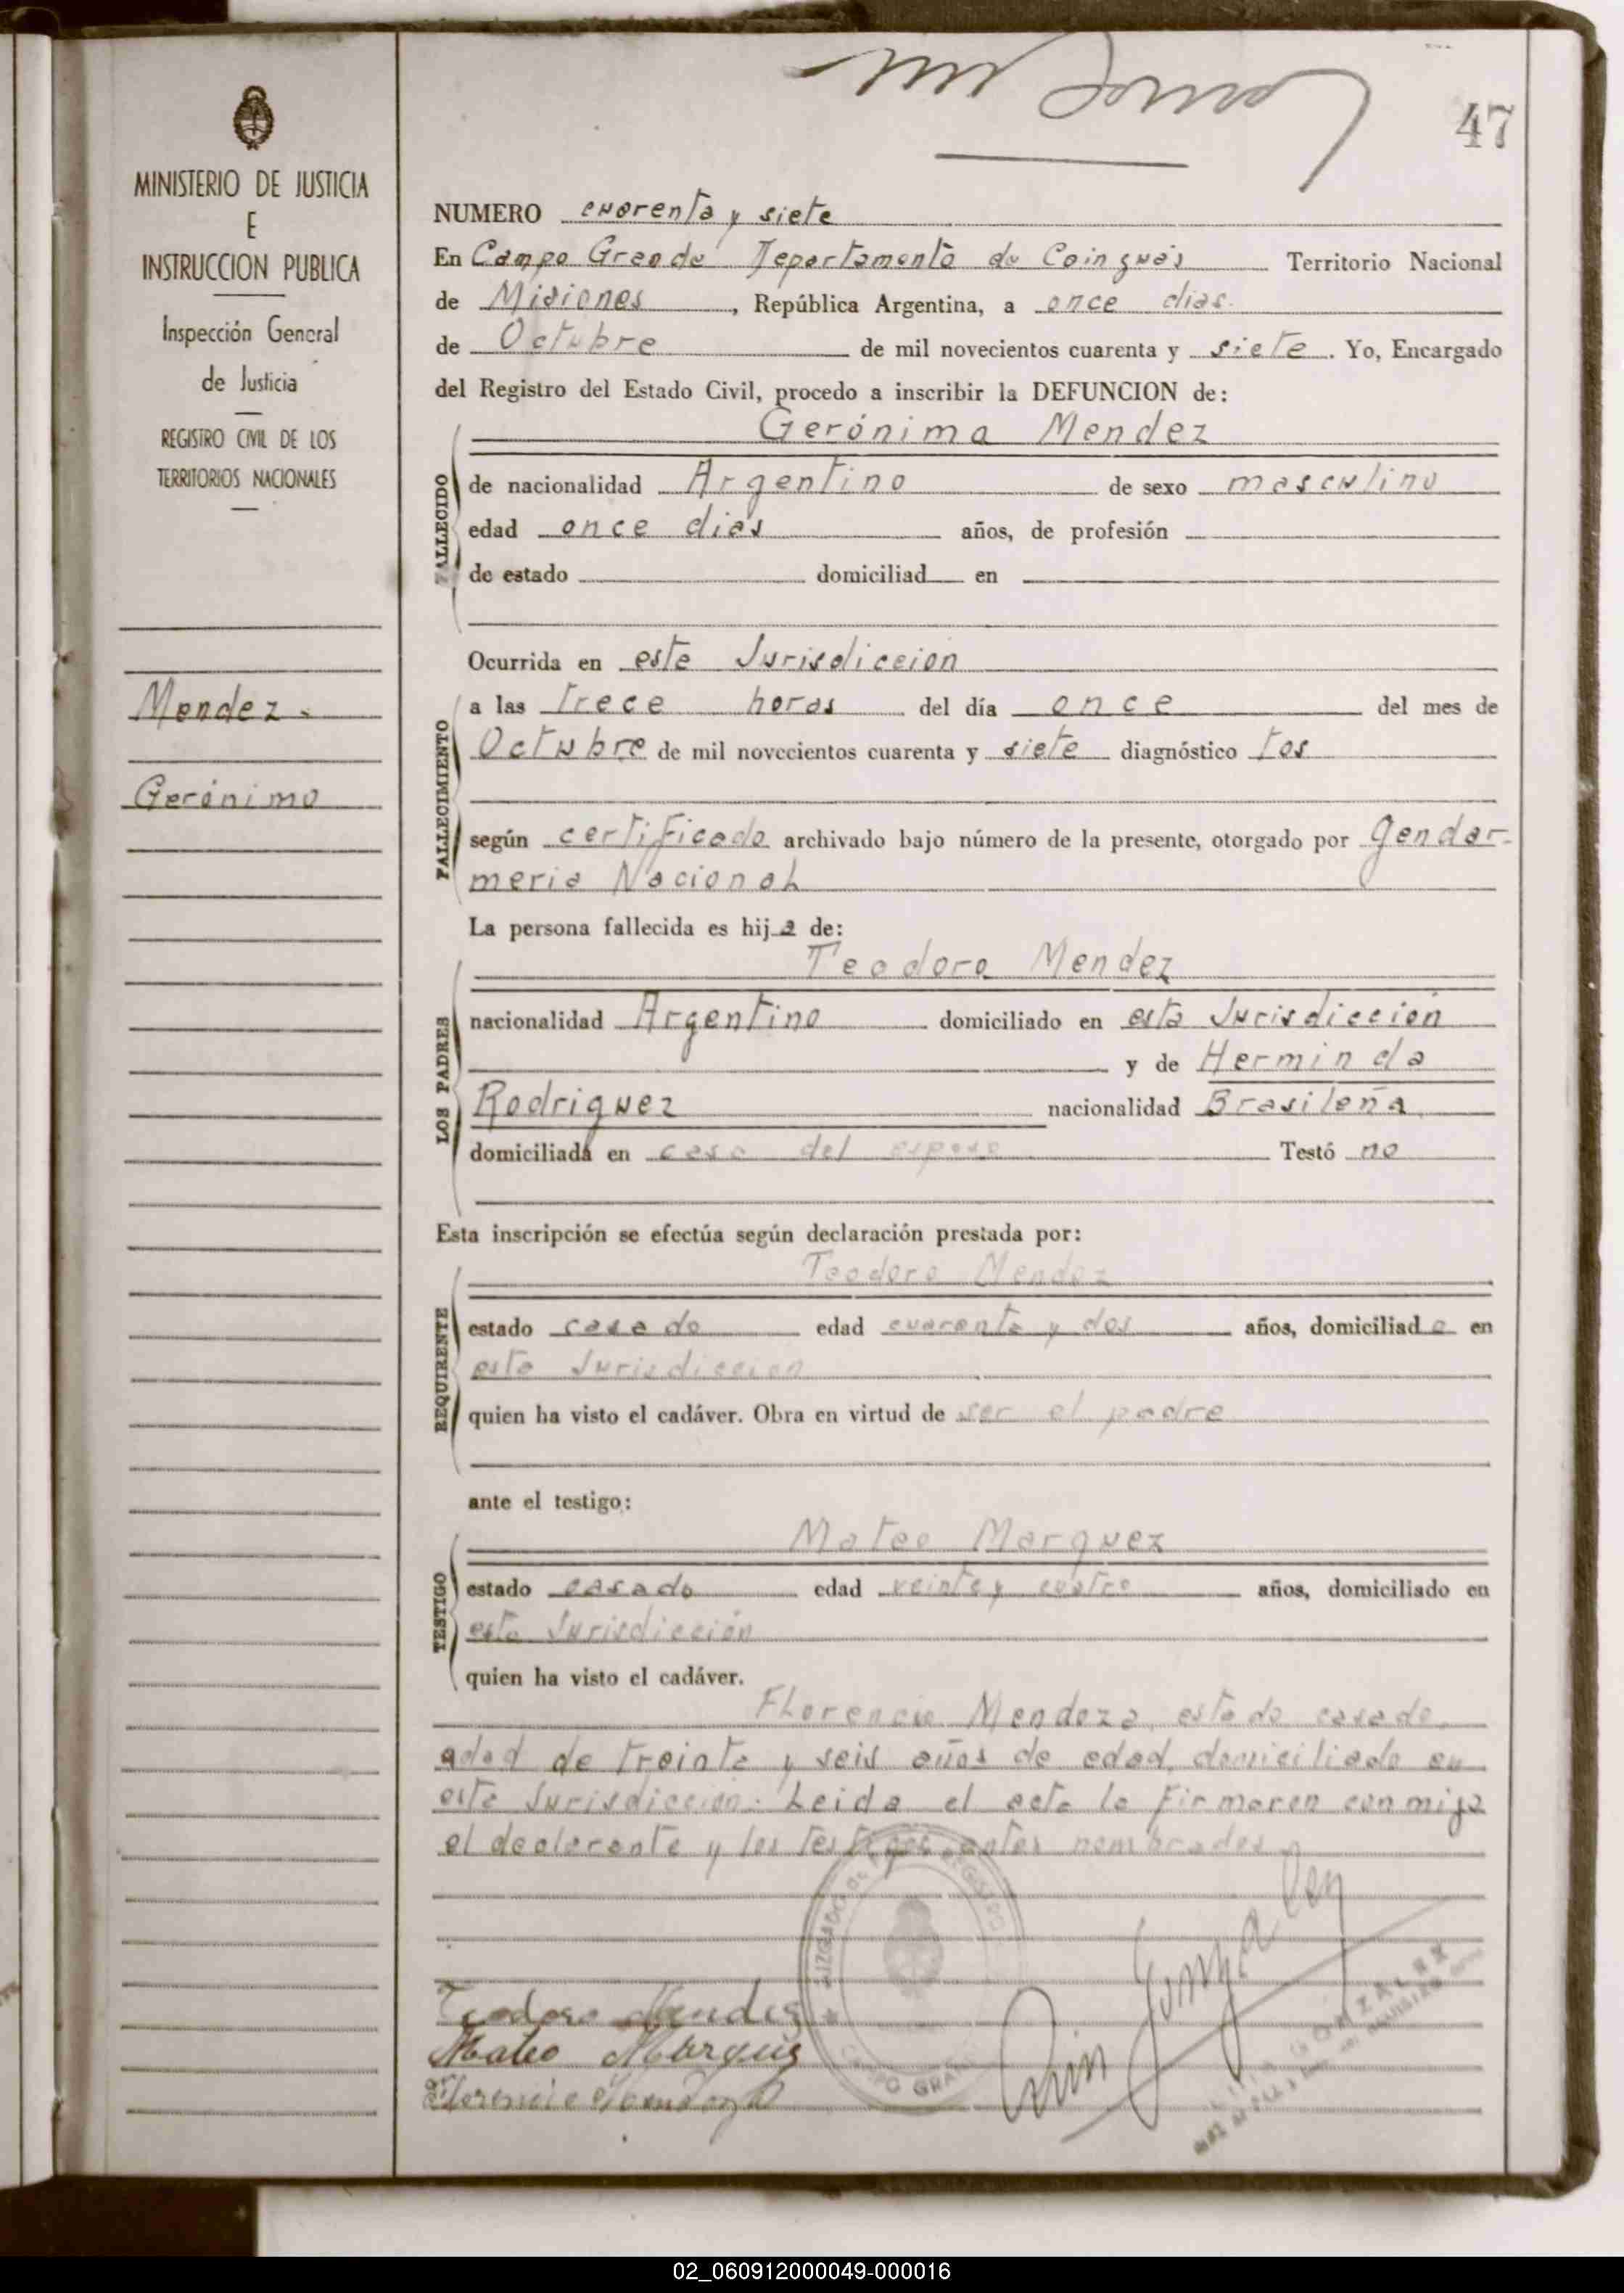 47
MINISTERIO DE JUSTICIA
E
INSTRUCCION PUBLICA
Inspección General
de Justicia
REGISTRO CIVIL DE LOS
TERRITORIOS NACIONALES
Mendez
Gerónimo
NUMERO cuarenta y siete
En Campo Grande Departamento de Cainguás Territorio Nacional
de Misiones, República Argentina, a once dias
de Octubre de mil novecientos cuarenta y siete. Yo, Encargado
del Registro del Estado Civil, procedo a inscribir la DEFUNCION de:
Gerónimo Mendez
FALLECIDO
de nacionalidad Argentino de sexo masculino
edad once dias años, de profesión
de estado domiciliad en
Ocurrida en este Jurisdiccion
FALLECIMIENTO
a las trece horas del día once del mes de
Octubre de mil novecientos cuarenta y siete diagnóstico tos
según certificado archivado bajo número de la presente, otorgado por Gendar-
meria Nacional
La persona fallecida es hij de:
LOS PADRES
Teodoro Mendez
nacionalidad Argentino domiciliado en esta Jurisdicción
y de Herminda
Rodriguez nacionalidad Brasileña
domiciliada en casa del esposo Testó no
Esta inscripción se efectúa según declaración prestada por:
REQUIRENTE
Teodoro Mendez
estado casado edad cuarenta y dos años, domiciliado en
esta Jurisdiccion
quien ha visto el cadáver. Obra en virtud de ser el padre
ante el testigo:
TESTIGO
Mateo Marquez
estado casado edad veinte y cuatro años, domiciliado en
esta Jurisdicción
quien ha visto el cadáver.
Florencio Mendoza, estado casado
edad de treinta y seis años de edad, domiciliado en
esta Jurisdicción. Leida el acta la firmaron conmigo
el declarante y los testigos antes nombrados
Teodoro Mendez
Mateo Marquez
Florencio Mendoza
JUZGADO DE REGISTRO
CAMPO GRANDE
GONZALEZ
02_060912000049-000016